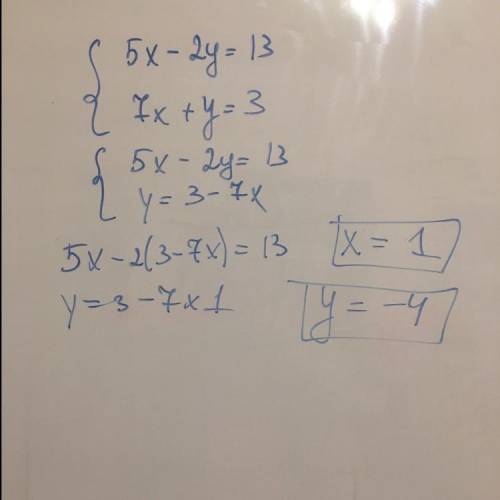 5x - 2y = 13
7x + y = 3
5x - 2y = 13
y = 3 - 7x
5x - 2(3 - 7x) = 13
x = 1
y = 3 - 7 x 1
y = -4